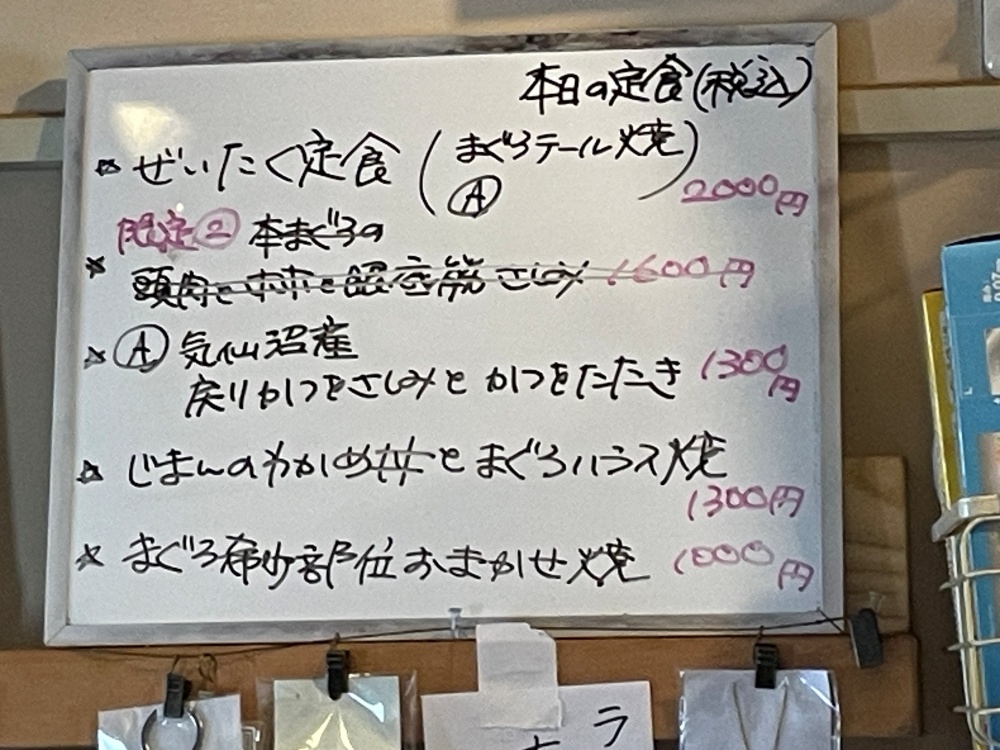 本日の定食(税込)
☆ ぜいたく定食 (まぐろテール焼
Ⓐ) 2000円
限定② 本まぐろの
☆ 頭肉とホホと さしみ 1600円
☆ Ⓐ 気仙沼産
戻りかつをさしみと かつをたたき 1300円
☆ じまんのわかめ丼と まぐろハラス焼
1300円
☆ まぐろ希少部位おまかせ焼 1000円
ラ